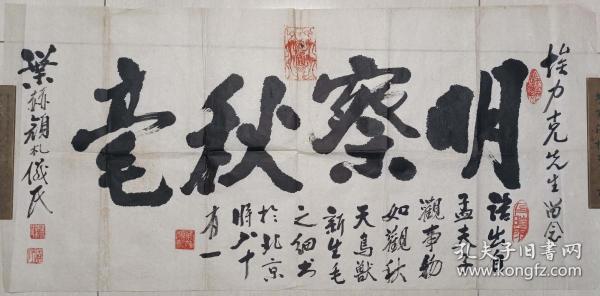 埃力克先生留念
明察秋毫
語出自
孟夫子
觀事物
如觀秋
天鳥獸
新生毛
之細书
於北京
時八十
有一
葉赫颜札儀民
孔夫子旧书网
www.kongfz.com